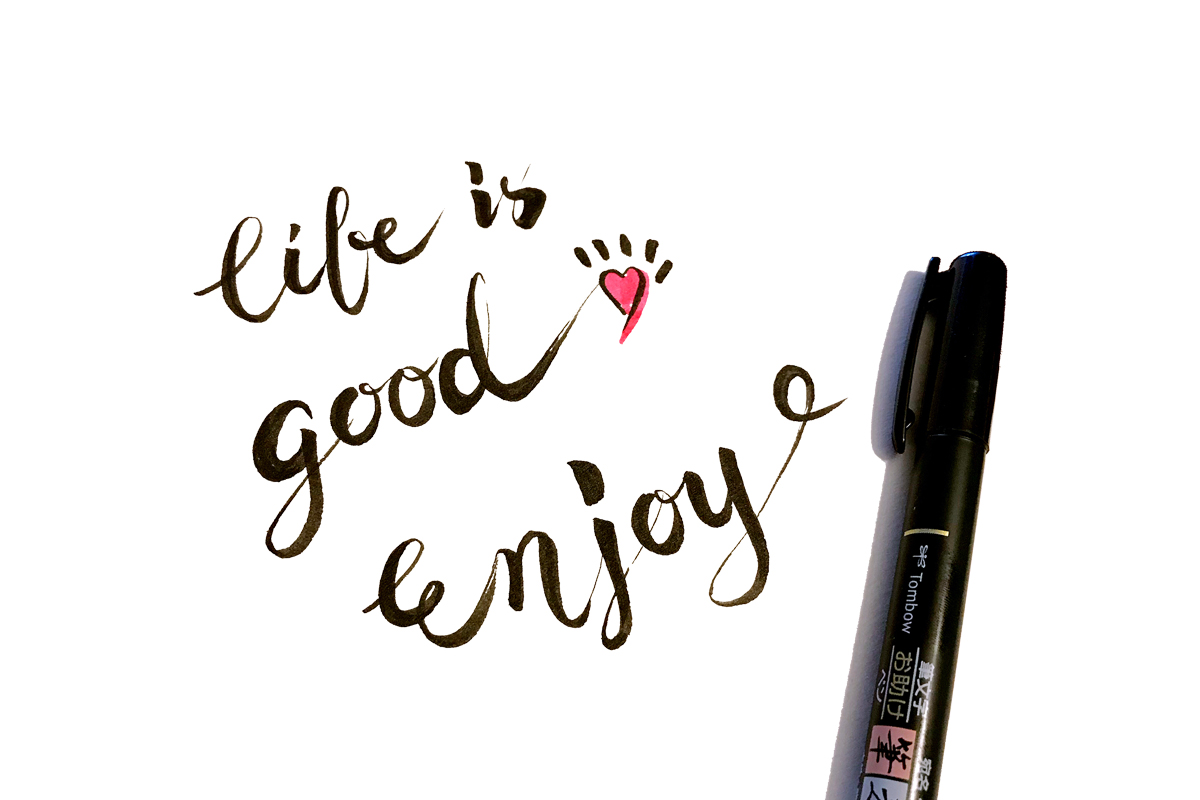 life is
good
enjoy
Tombow
筆文字
お助け
ペン
筆